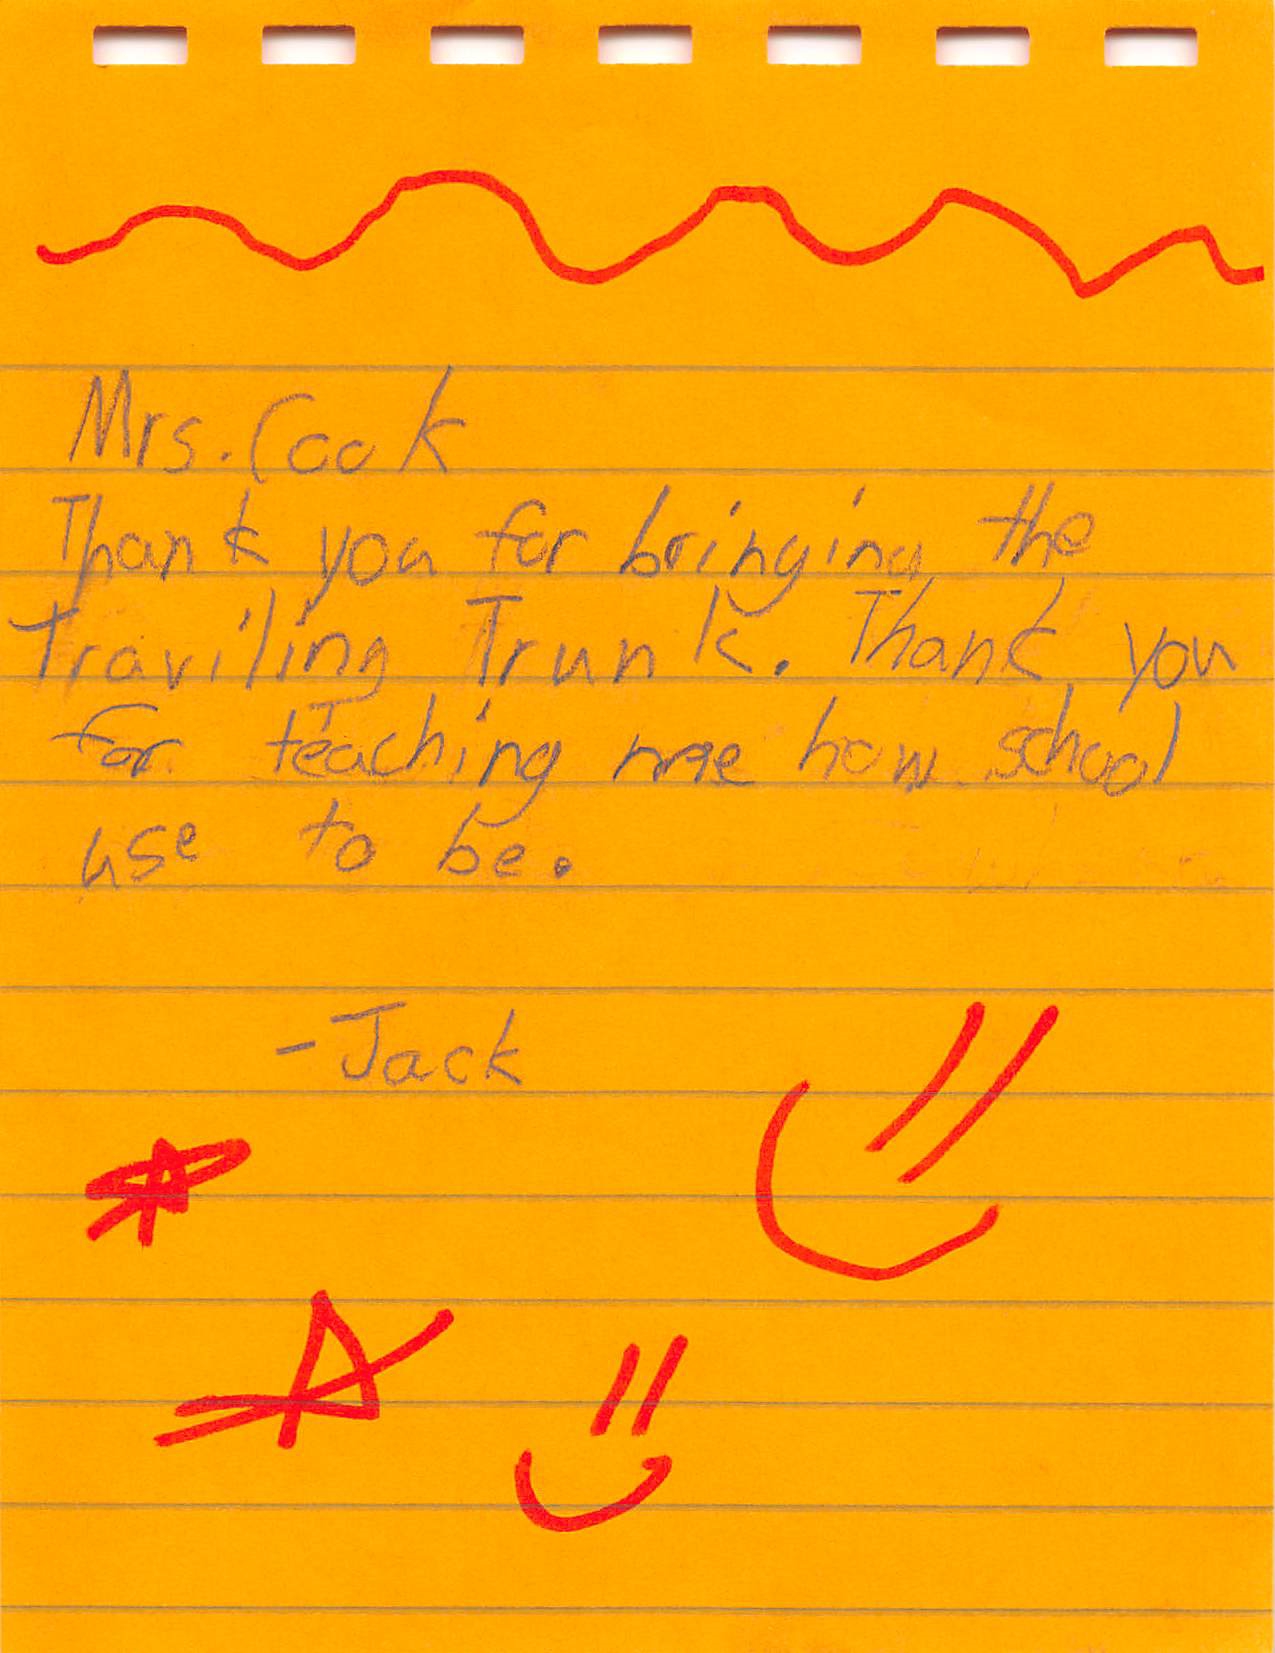 Mrs. Cook
Thank you for bringing the
Traviling Trunk. Thank you
for teaching me how school
use to be.
-Jack